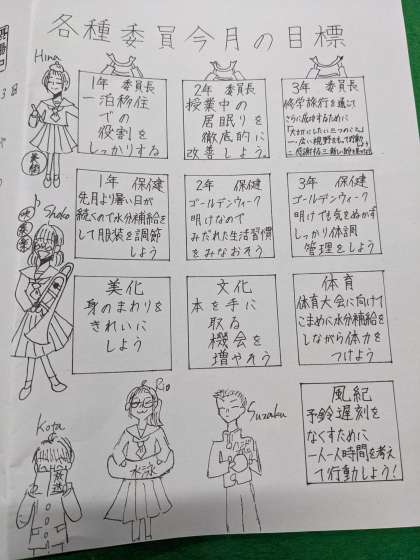 各種委員今月の目標
Hina
美術
1年 委員長
一泊移住
での
役割を
しっかりする
2年 委員長
授業中の
居眠りを
徹底的に
改善しよう。
3年 委員長
修学旅行を通じて
さらに成長するために
Shoko
吹奏楽
1年 保健
先月より暑い日が
続くので水分補給を
して服装を調節
しよう
2年 保健
ゴールデンウィーク
明けなので
みだれた生活習慣
をみなおそう
3年 保健
ゴールデンウィーク
明けでも気をぬかず
しっかり体調
管理をしよう
美化
身のまわりを
きれいに
しよう
文化
本を手に
取る
機会を
増やそう
体育
体育大会に向けて
こまめに水分補給を
しながら体力を
つけよう
Kota
Rio
水泳
Suzaku
風紀
予鈴遅刻を
なくすために
一人一人時間を考え
て行動しよう!